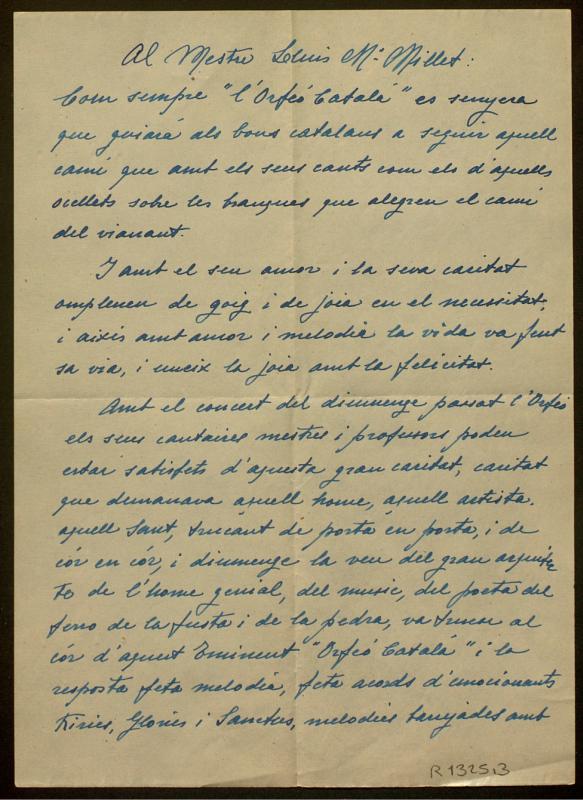 Al Mestre Lluis Mª Millet:
Com sempre "l'Orfeó Catalá" es senyera
que guiará als bons catalans a seguir aquell
camí que amb els seus cants com els d'aquells
ocellets sobre les branques que alegren el camí
del vianant.
I amb el seu amor i la seva caritat
omplenen de goig i de joia en el necessitat,
i aixís amb amor i melodià la vida va fent
sa via, i uneix la joia amb la felicitat.
Amb el concert del diumenge passat l'Orfeó
els seus cantaires mestres i professors poden
estar satisfets d'aquesta gran caritat, caritat
que demanava aquell home, aquell artista,
aquell Sant, trucant de porta en porta, i de
cór en cór, i diumenge la veu del gran arquitec
te de l'home genial, del music, del poeta del
ferro de la fusta i de la pedra, va trucar al
cór d'aquest Eminent "Orfeó Catalá" i la
resposta feta melodia, feta acords d'emocionants
Kiries, Glories i Sanctus, melodies barrejades amb
R 1325,3